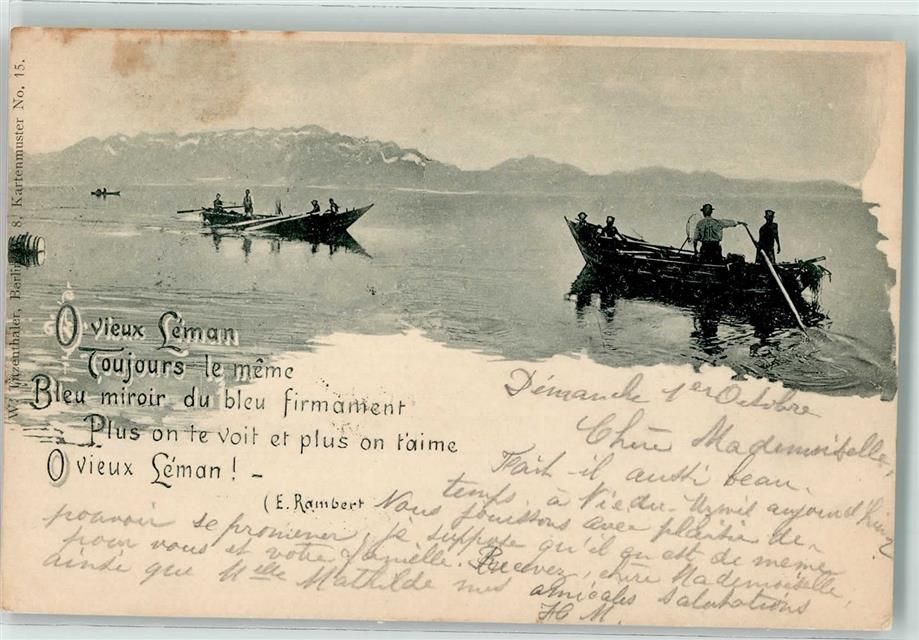 W. Litzenthaler, Berlin 8. Kartenmuster No. 15.
O vieux Léman
Toujours le même
Bleu miroir du bleu firmament
Plus on te voit et plus on t'aime
O vieux Léman ! -
(E. Rambert
Démanche 1er Octobre
Chère Mademoiselle,
Fait-il aussi beau
temps à aujourd'hui
Nous jouissons avec plaisir de
pouvoir se promener, je suppose qu'il en est de meme
pour vous et votre famille. Recevez, chère Mademoiselle,
ainsi que Melle Mathilde mes amicales salutations
H M.